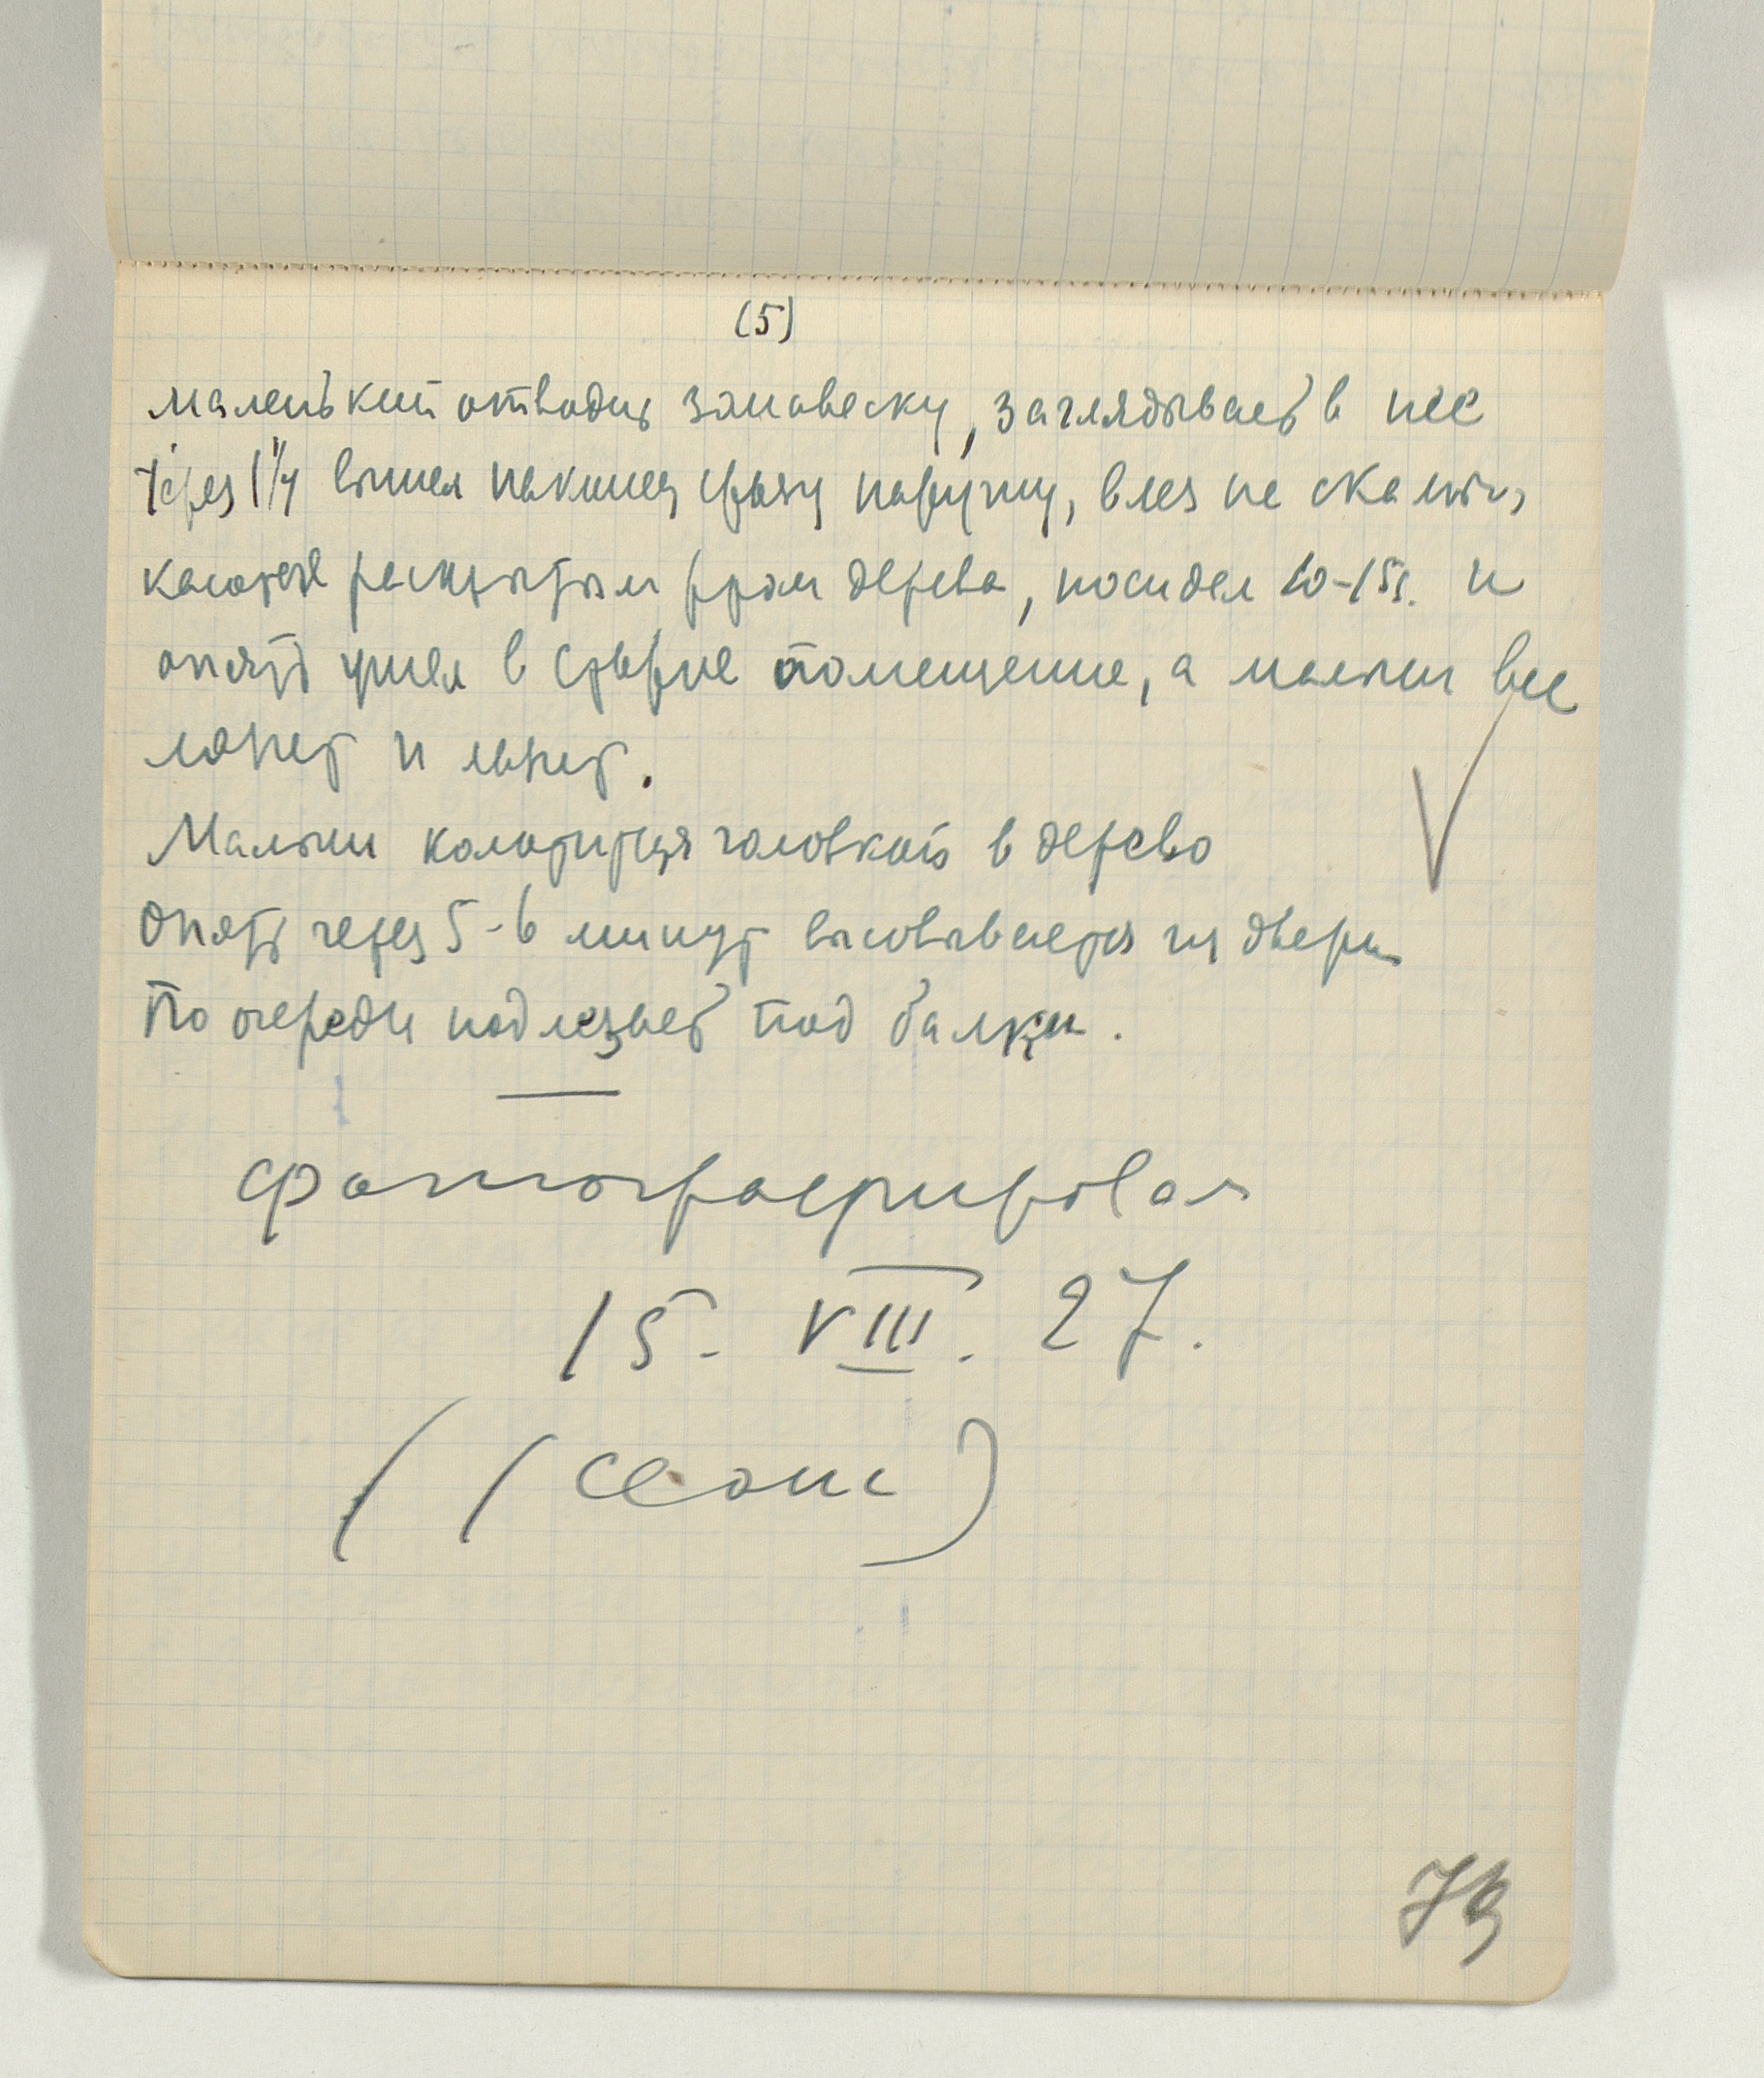 (5)
маленький отводит занавеску, заглядывает в нее
через 1 1/4 вышел наконец сразу наружу, влез на
касаясь дерева, посидел 10-15с. и
опять ушел в помещение, а малыш все
лопает и лопает.
Малыш колотится головкой в дерево
опять через 5-6 минут высовывается из двери
По очереди подлезает под балки.
фотографировал
15. VIII. 27.
( ( сеанс )
79